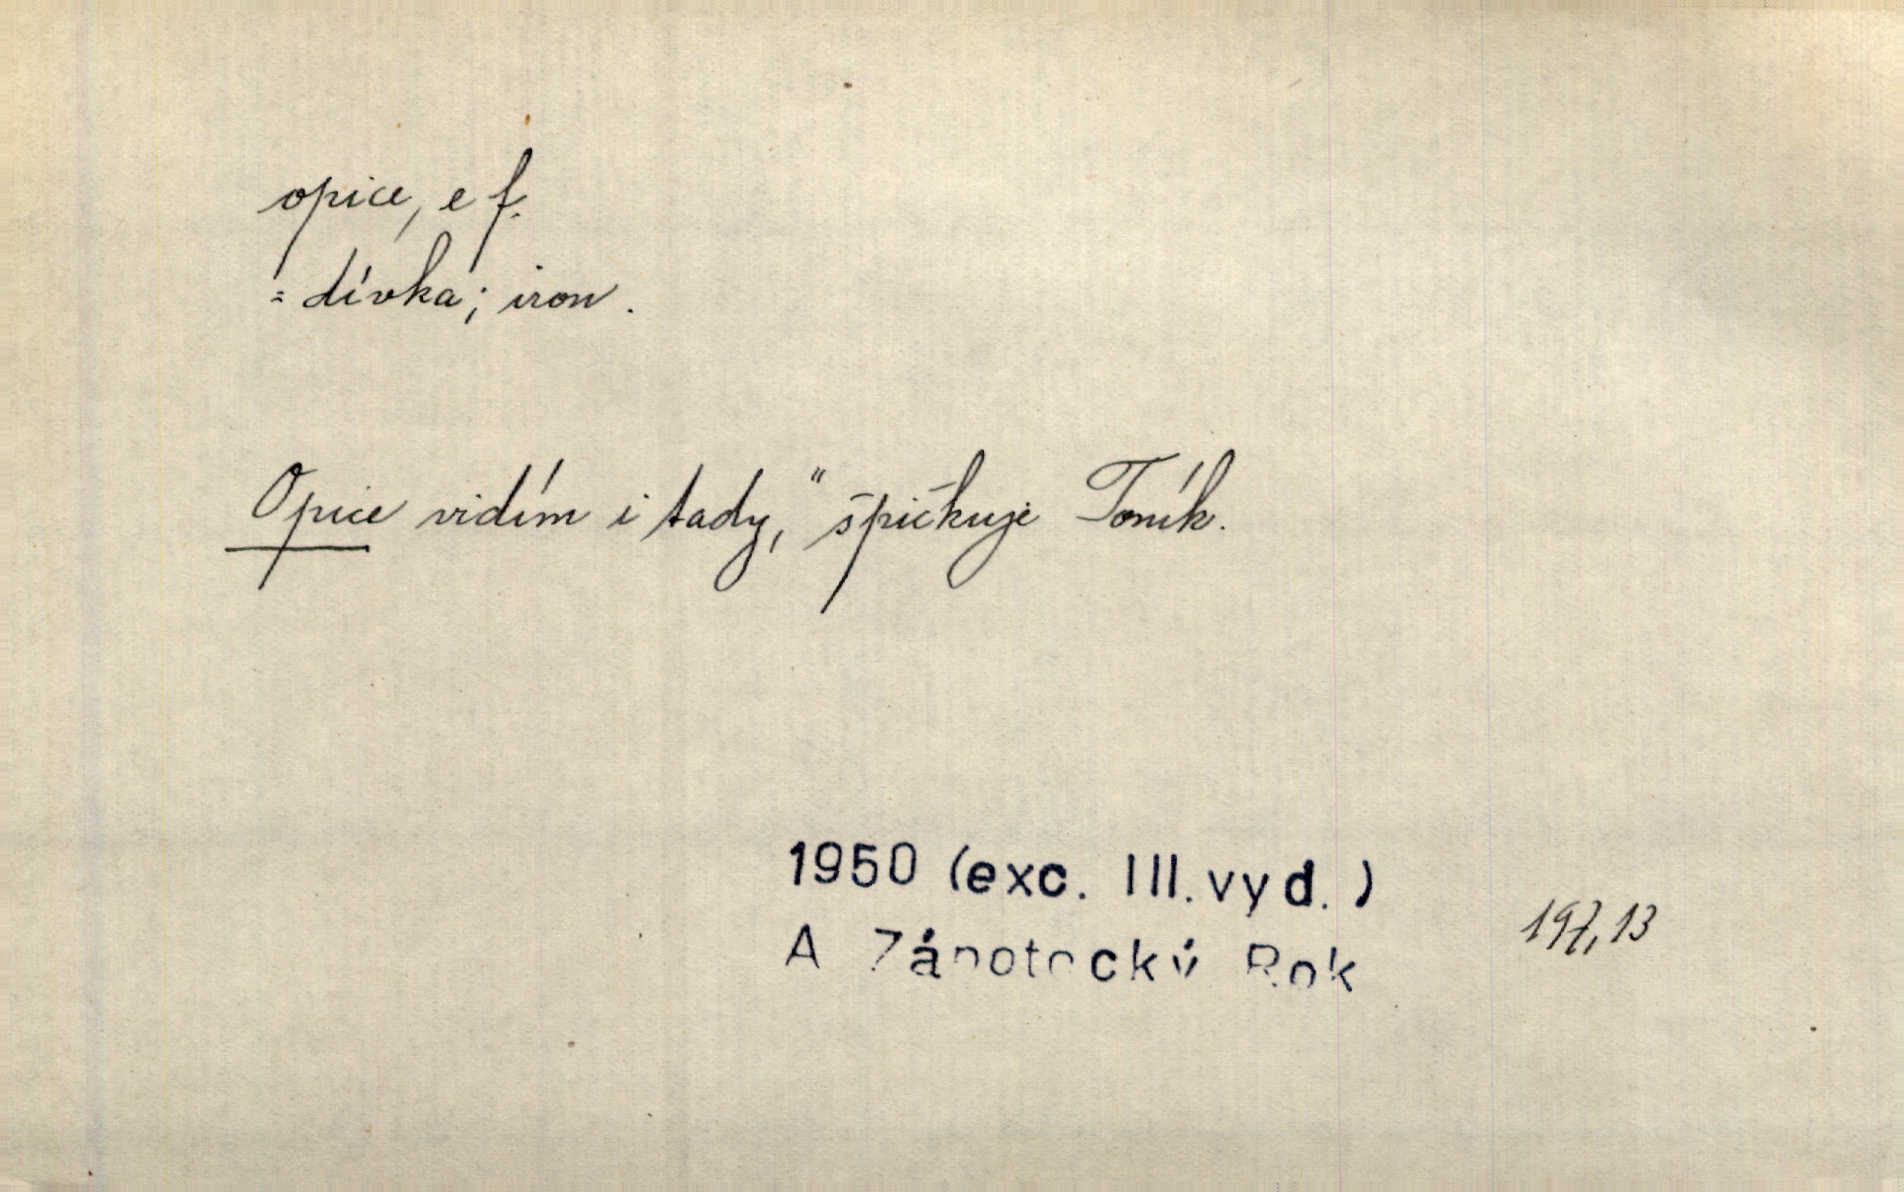 opice, e f.
= dívka; iron.
Opice vidím i tady," špičkuje Toník.
1950 (exc. III. vyd.)
A Zápotocký Rok
197,13